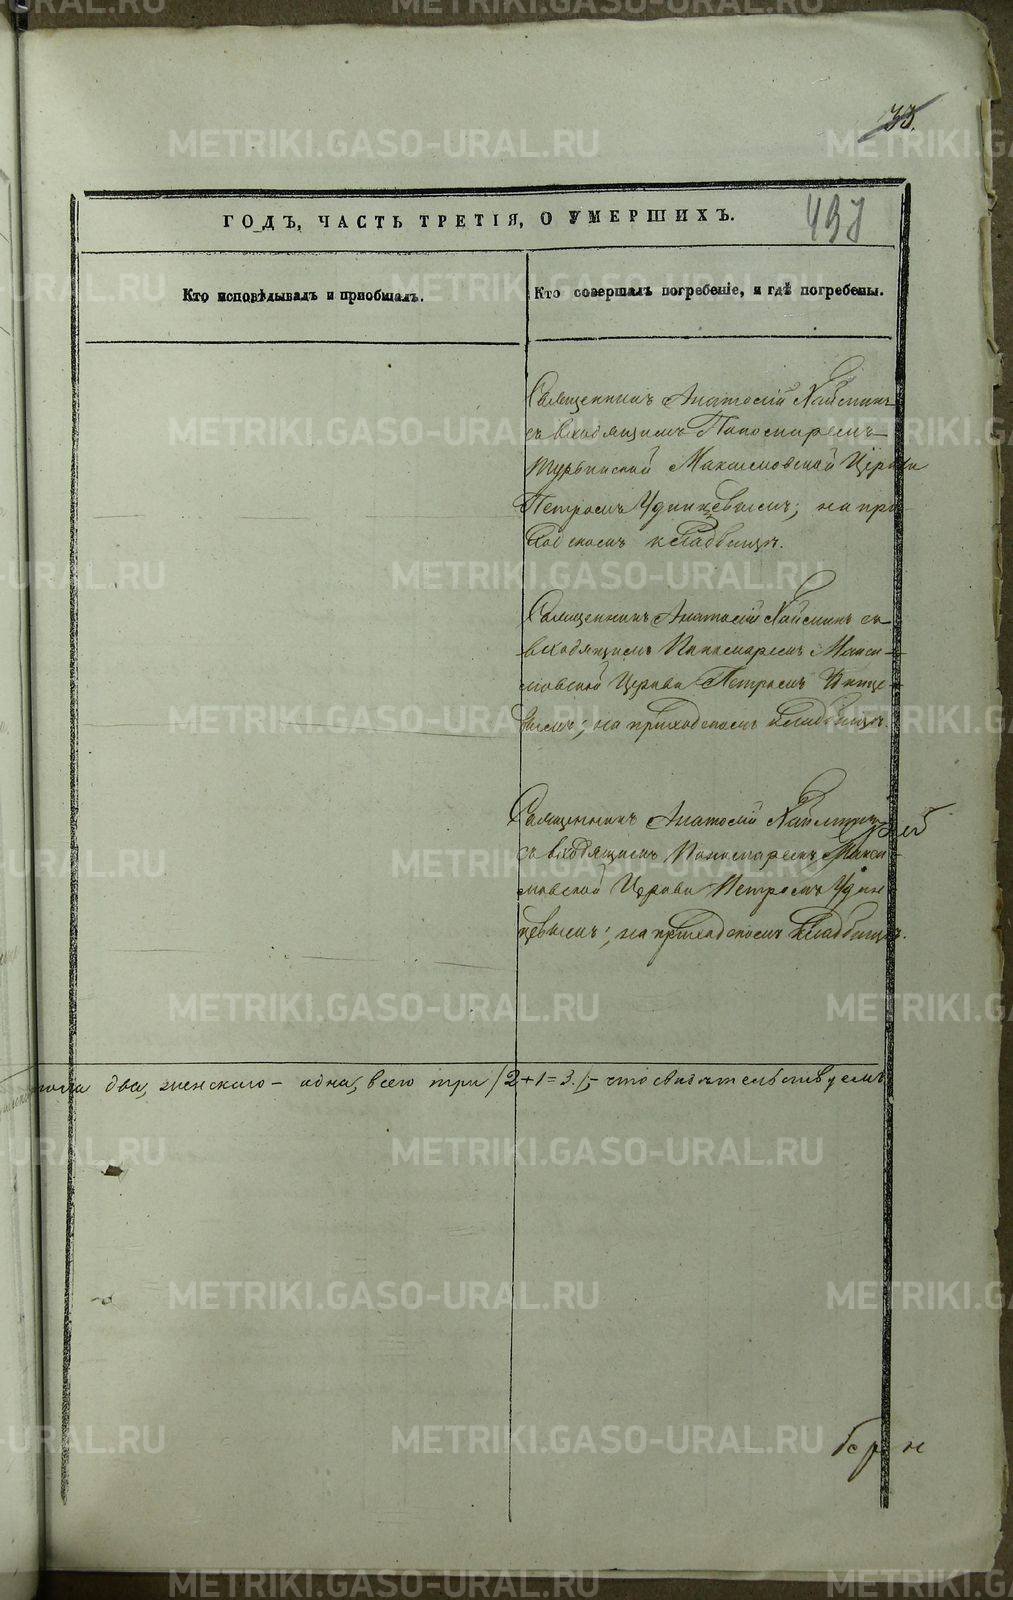 33.
ГОДЪ, ЧАСТЬ ТРЕТІЯ, О УМЕРШИХЪ.
497
Кто исповѣдывалъ и приобщалъ.
Кто совершалъ погребеніе, и гдѣ погребены.
Священникъ Анатолій
съ входящимъ Пономаремъ
Турьинской Максимовской Церкви
Петромъ Удинцевымъ; на при-
ходскомъ кладбищѣ.
Священникъ Анатолій съ
входящимъ Пономаремъ Макси-
мовской Церкви Петромъ
вымъ; на приходскомъ кладбищѣ.
Священникъ Анатолій
съ входящимъ Пономаремъ Макси-
мовской Церкви Петромъ Удин-
цевымъ; на приходскомъ кладбищѣ.
пола два, женскаго – одна, всего три /2+1=3./– что свидѣтельствуемъ
METRIKI.GASO-URAL.RU